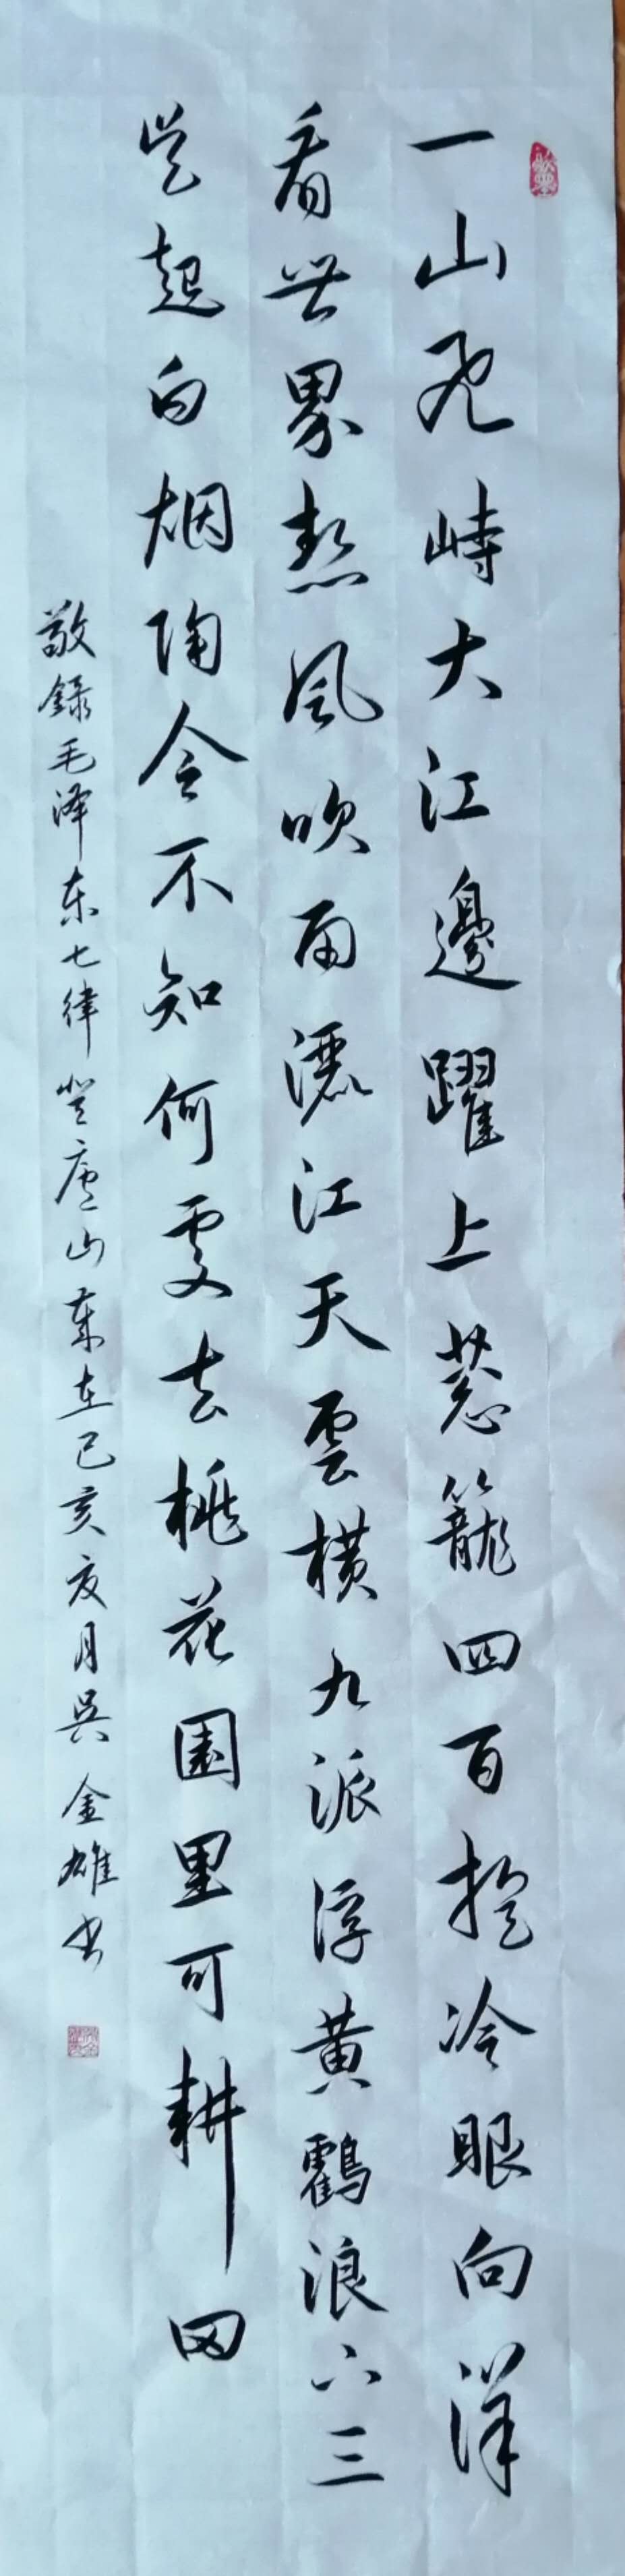 一山飛峙大江邊躍上葱籠四百旋冷眼向洋
看世界熱風吹雨灑江天雲横九派浮黄鸖浪下三
吴起白烟陶令不知何處去桃花園里可耕田
敬錄毛泽东七律登庐山歲在己亥夏月吴金雄书